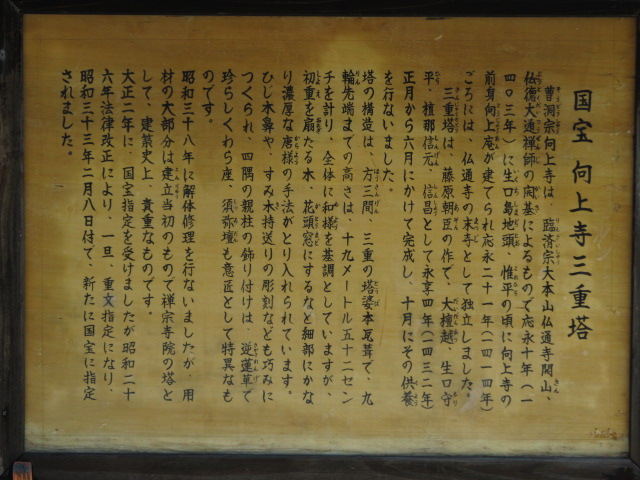 国宝 向上寺三重塔
曹洞宗向上寺は、臨済宗大本山仏通寺開山、
仏徳大通禅師の開基によるもので応永十年(一
四〇三年)に生口島地頭、惟平の頃に向上寺の
前身向上庵が建てられ応永二十一年(一四一四年)
ごろには、仏通寺の末寺として独立しました。
三重塔は、藤原朝臣の作で、大檀越、生口守
平、檀那信元、信昌として永享四年(一四三二年)
正月から六月にかけて完成し、十月にその供養
を行ないました。
塔の構造は、方三間、三重の塔婆本瓦葺で、九
輪先端までの高さは、十九メートル五十二セン
チを計り、全体に和様を基調としていますが、
初重を扇たる木、花頭窓にするなど細部にかな
り濃厚な唐様の手法がとり入れられています。
ひじ木鼻や、すみ木持送りの彫刻なども巧みに
つくられ、四隅の親柱の飾り付けは、逆蓮華で
珍らしくわら座、須弥壇も意匠として特異なも
のです。
昭和三十八年に解体修理を行ないましたが、用
材の大部分は建立当初のもので禅宗寺院の塔と
して、建築史上、貴重なものです。
大正二年に、国宝指定を受けましたが昭和二十
六年法律改正により、一旦、重文指定になり、
昭和三十三年二月八日付で、新たに国宝に指定
されました。